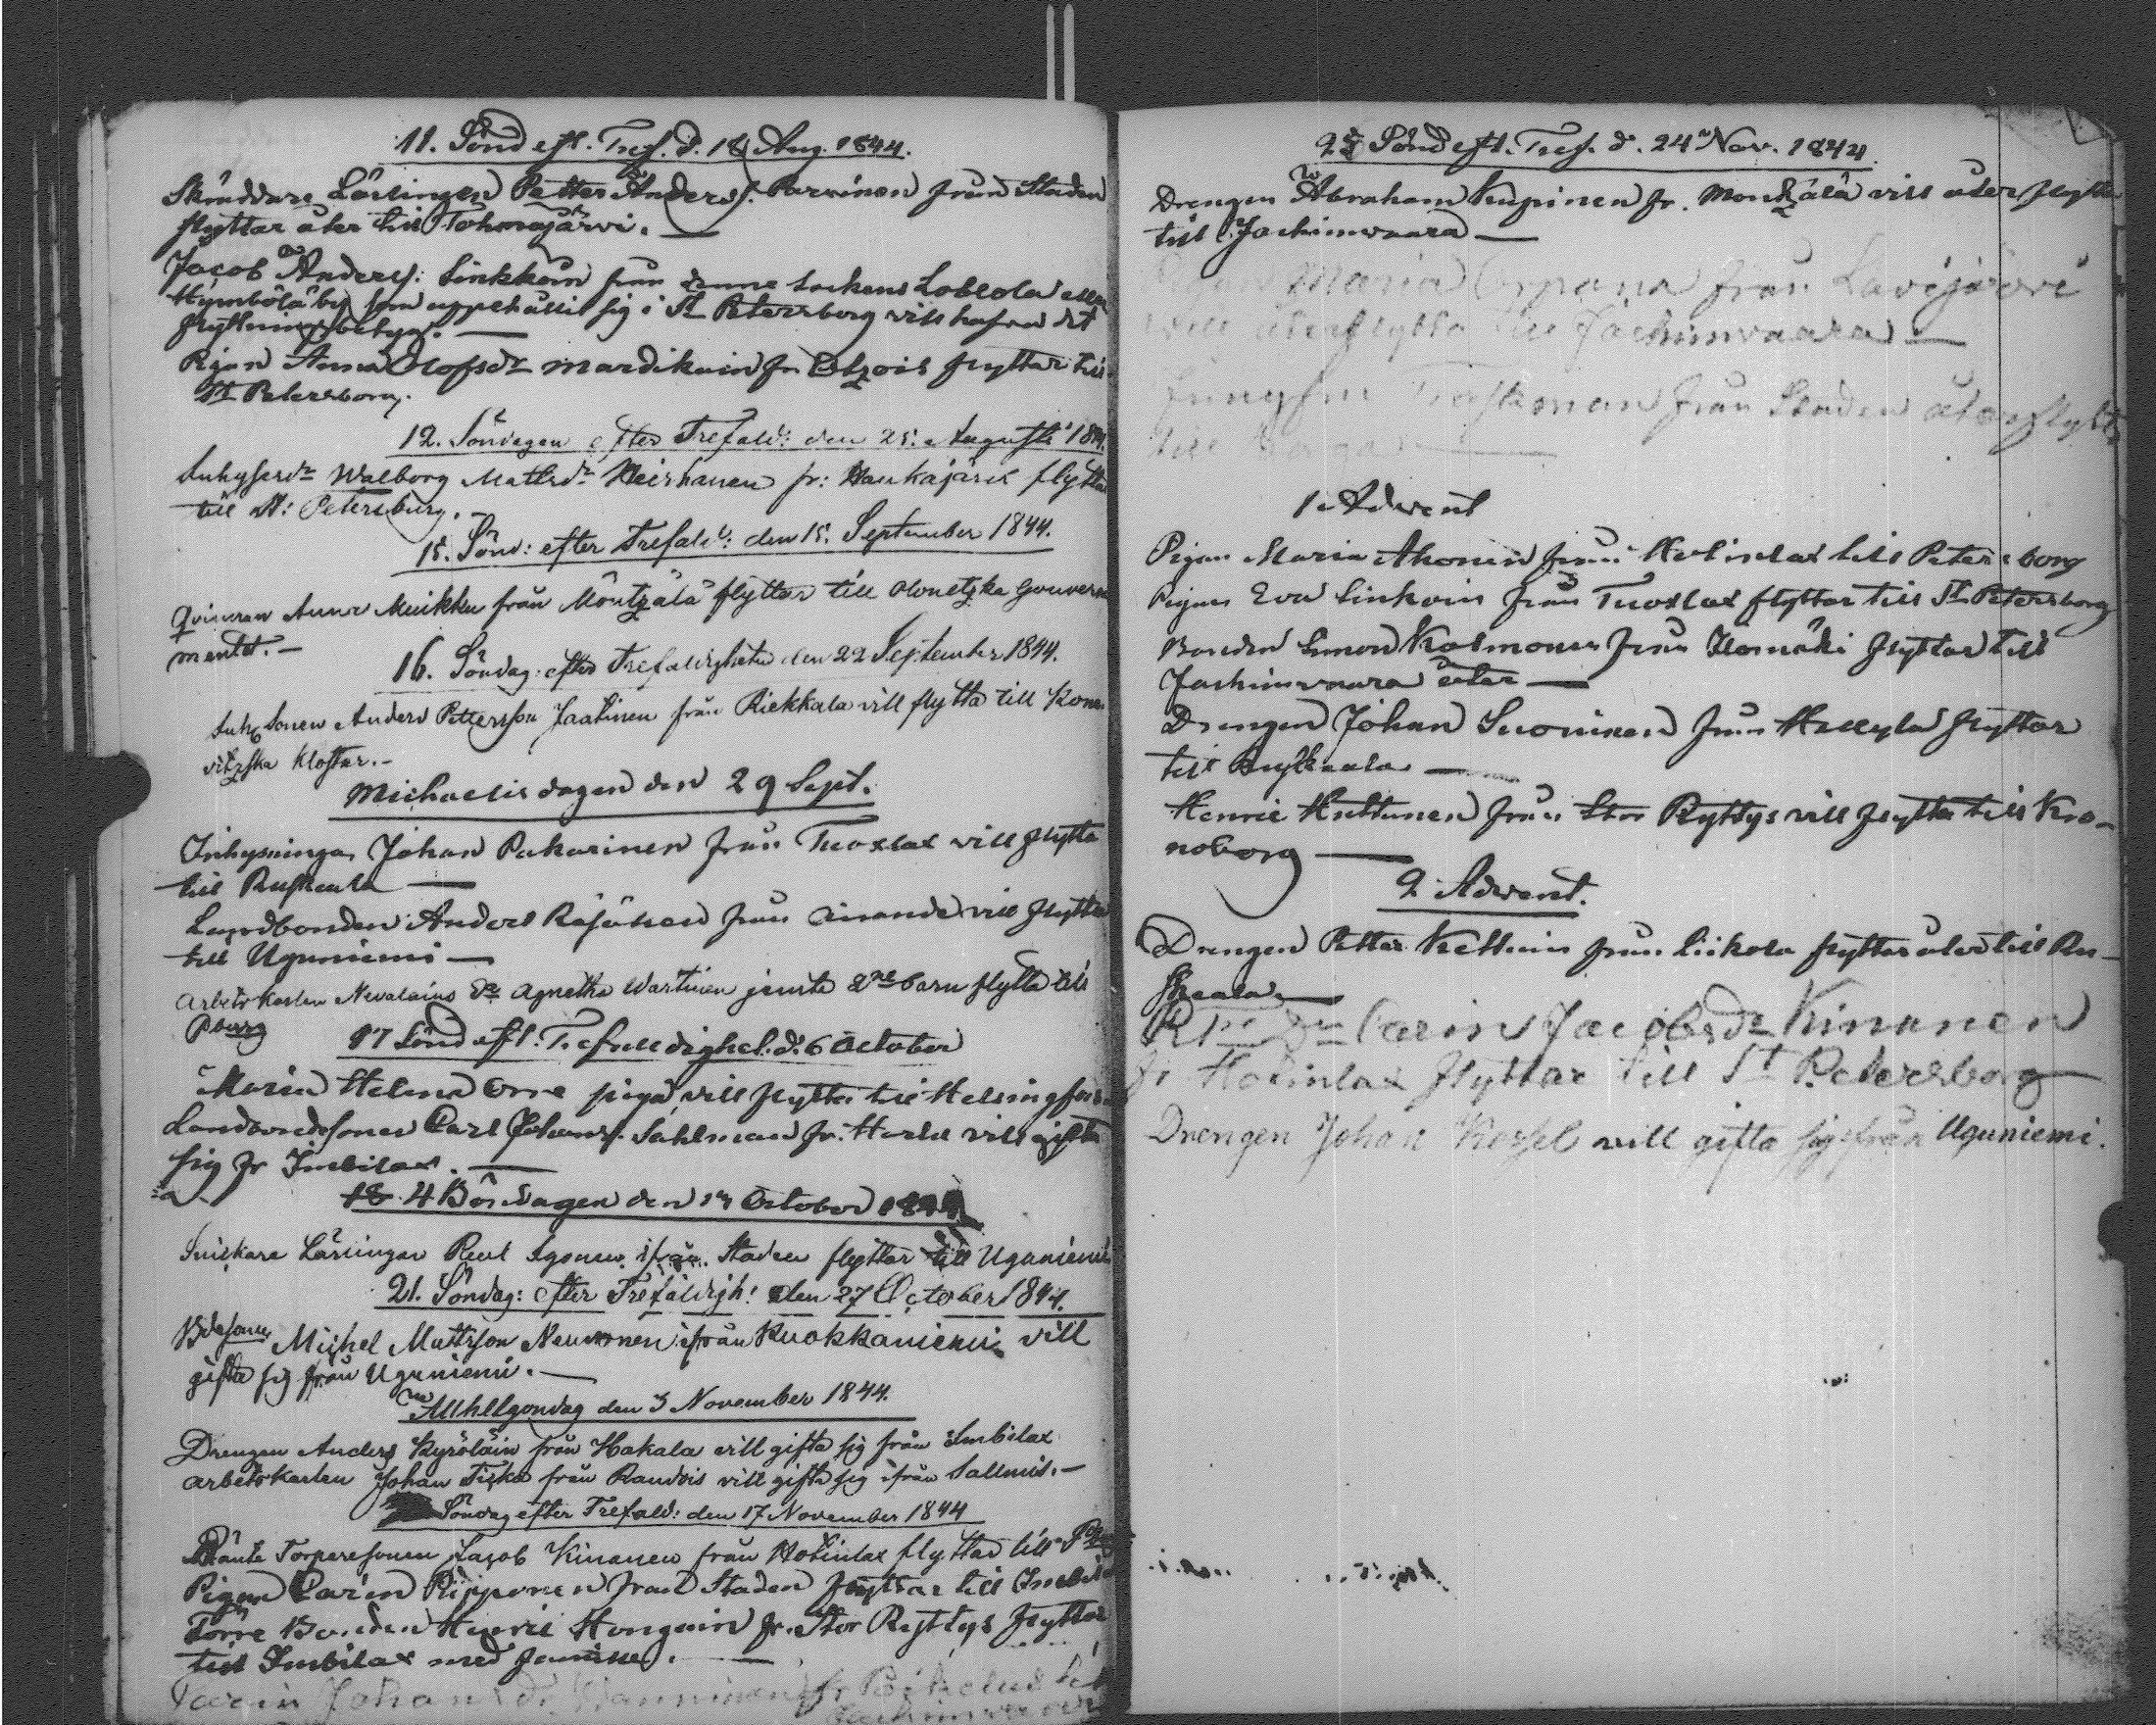 11. Sönd eft. Tref. d. 18 Aug. 1844.
Skräddare Lärlingen Petter Anders. Parvinen från Staden
flyttar åter till Tohmajärvi.
Jacob Anders: Sinkkoin från denne Sockens
Hymbölä by som uppehållit sig i St Petersborg vill hafva sit
flyttningsbetyg.
Pigan Anna Olofsdr Mardikain fr. flyttar till
St Petersborg.
12. Söndagen efter Trefald: den 25. Augusti 1844.
Inhysesdr Walborg Mattsdr fr: Haukajärvi flyttar
till St: Petersburg.
15. Sönd: efter Trefald: den 15. September 1844.
Qvinnan Anna Muikku från Möntzälä flyttar till Olonetzka Gouverne
mentet.
16. Söndag: efter Trefaldigheten den 22 September 1844.
Inh Sonen Anders Pettersson Jaatinen från Riekkala vill flytta till Kone
vitzska Kloster.
Michaelis dagen den 29 Sept.
Inhysningen Johan Pakarinen från Tuoxlax vill flytta
till Ruskeala
Landbonden Anders Räsänen från vill flytta
till Uguniemi
Arbets Karlen Nevalains dr Agnetha Wartinen jemte 2ne barn flytta till
Pborg
17 Sönd eft. Trefaldighet. d. 6 October
Maria Helena Orre piga, vill flytta till Helsingfors
Landbondesonen Carl Johans. Sahlman fr. vill gifta
sig fr Imbilax.
18. 4 Böndagen den October 1844
Snickare Lärlingen Paul Agonen ifrån Staden flyttar till Uguniemi
21. Söndag: efter Trefaldigh: den 27 October 1844.
Bdesonen Michel Mattsson Neuvonen ifrån Kuokkaniemi vill
gifta sig från Uguniemi.
Allhelgondag den 3 November 1844.
Drengen Anders Kyröläin från Hakala vill gifta sig från Imbilax
Arbetskarlen Johan Tiska från Raudois vill gifta sig ifrån Sallmis.
Söndag efter Trefald: den 17 November 1844
Torparesonen Jacob Kinanen från Hotinlax flyttar till Pborg
Pigan Carin Ripponen från Staden flyttar till Imbilax
Förre Bonden Henric Hongain fr. Stor Ryttys flyttar
till Imbilax med familie.
Carin Johansdr
25 Sönd eft. Tref. d. 24 Nov. 1844
Drengen Abraham Kupinen fr. Montzälä vill åter flytta
till Jachimvaara
Maria från Lavijärvi
vill återflytta till Jachimvaara
från Staden återflytta
till
1. Advent
Pigan Maria Ahonin från Hotinlax till Petersborg
Pigan Eva Sinkoin från Tuoxlax flyttar till St Petersborg
Bonden Simon Kolmonen från Ilomäki flyttar till
Jachimvaara åter
Drengen Johan Suoninen från Helleylä flyttar
till Ruskeala
Henric Huttunen från Stor Ryttys vill flytta till Kro-
noborg
2. Advent.
Drengen Petter Kettuin från Liikola flyttar åter till Ru-
skeala
Carin Jacobsdr Kinanen
fr Hotinlax flyttar till St Petersborg
Drengen Johan Kossel vill gifta sig från Uguniemi.